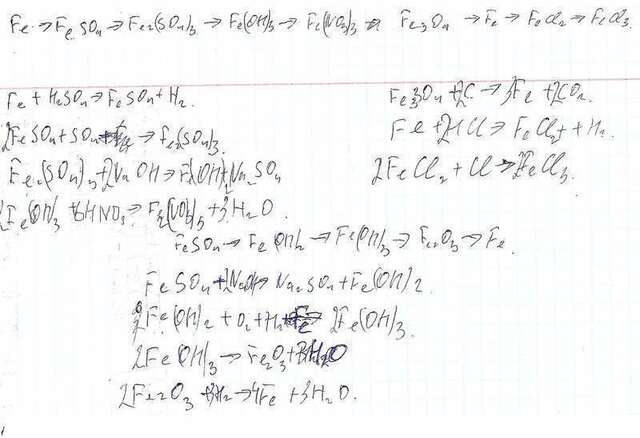 Fe → FeSO4 → Fe2(SO4)3 → Fe(OH)3 → Fe(NO3)3 → Fe3O4 → Fe → FeCl2 → FeCl3.
Fe + H2SO4 → FeSO4 + H2.
2FeSO4 + SO4 → Fe2(SO4)3.
Fe2(SO4)3 + 2NaOH → Fe(OH) + Na2SO4
2Fe(OH)3 + 6HNO3 → Fe2(NO3)3 + 3H2O.
Fe3O4 + 2C → 3Fe + 2CO2.
Fe + 2HCl → FeCl2 + H2.
2FeCl2 + Cl → 2FeCl3.
FeSO4 → Fe(OH)2 → Fe(OH)3 → Fe2O3 → Fe.
FeSO4 + 2NaOH → Na2SO4 + Fe(OH)2.
2Fe(OH)2 + O2 + H2 → 2Fe(OH)3.
2Fe(OH)3 → Fe2O3 + 3H2O
2Fe2O3 + 3H2 → 4Fe + 3H2O.